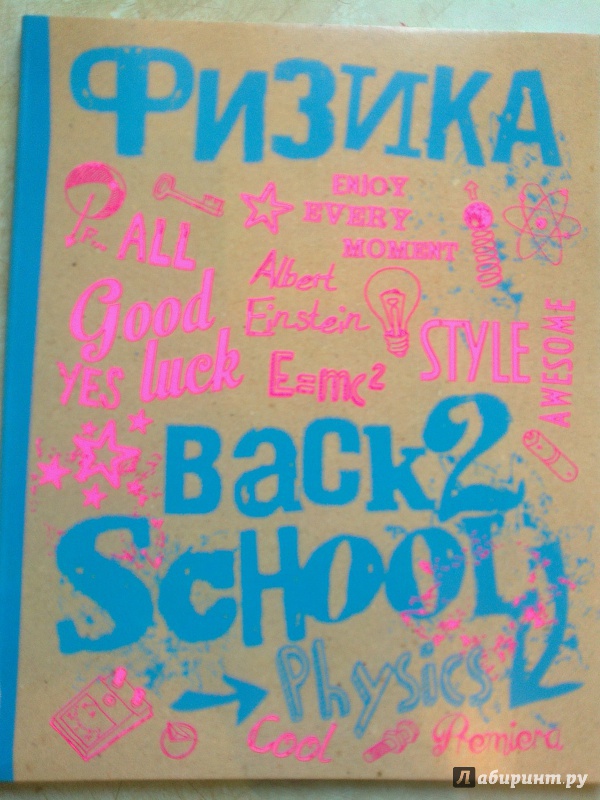 ФИЗИКА
ENJOY
EVERY
MOMENT
ALL
Albert
Einstein
Good
luck
YES
E=mc²
STYLE
AWESOME
BACK2
SCHOOL
Physics
Cool
Premiera
Лабиринт.ру